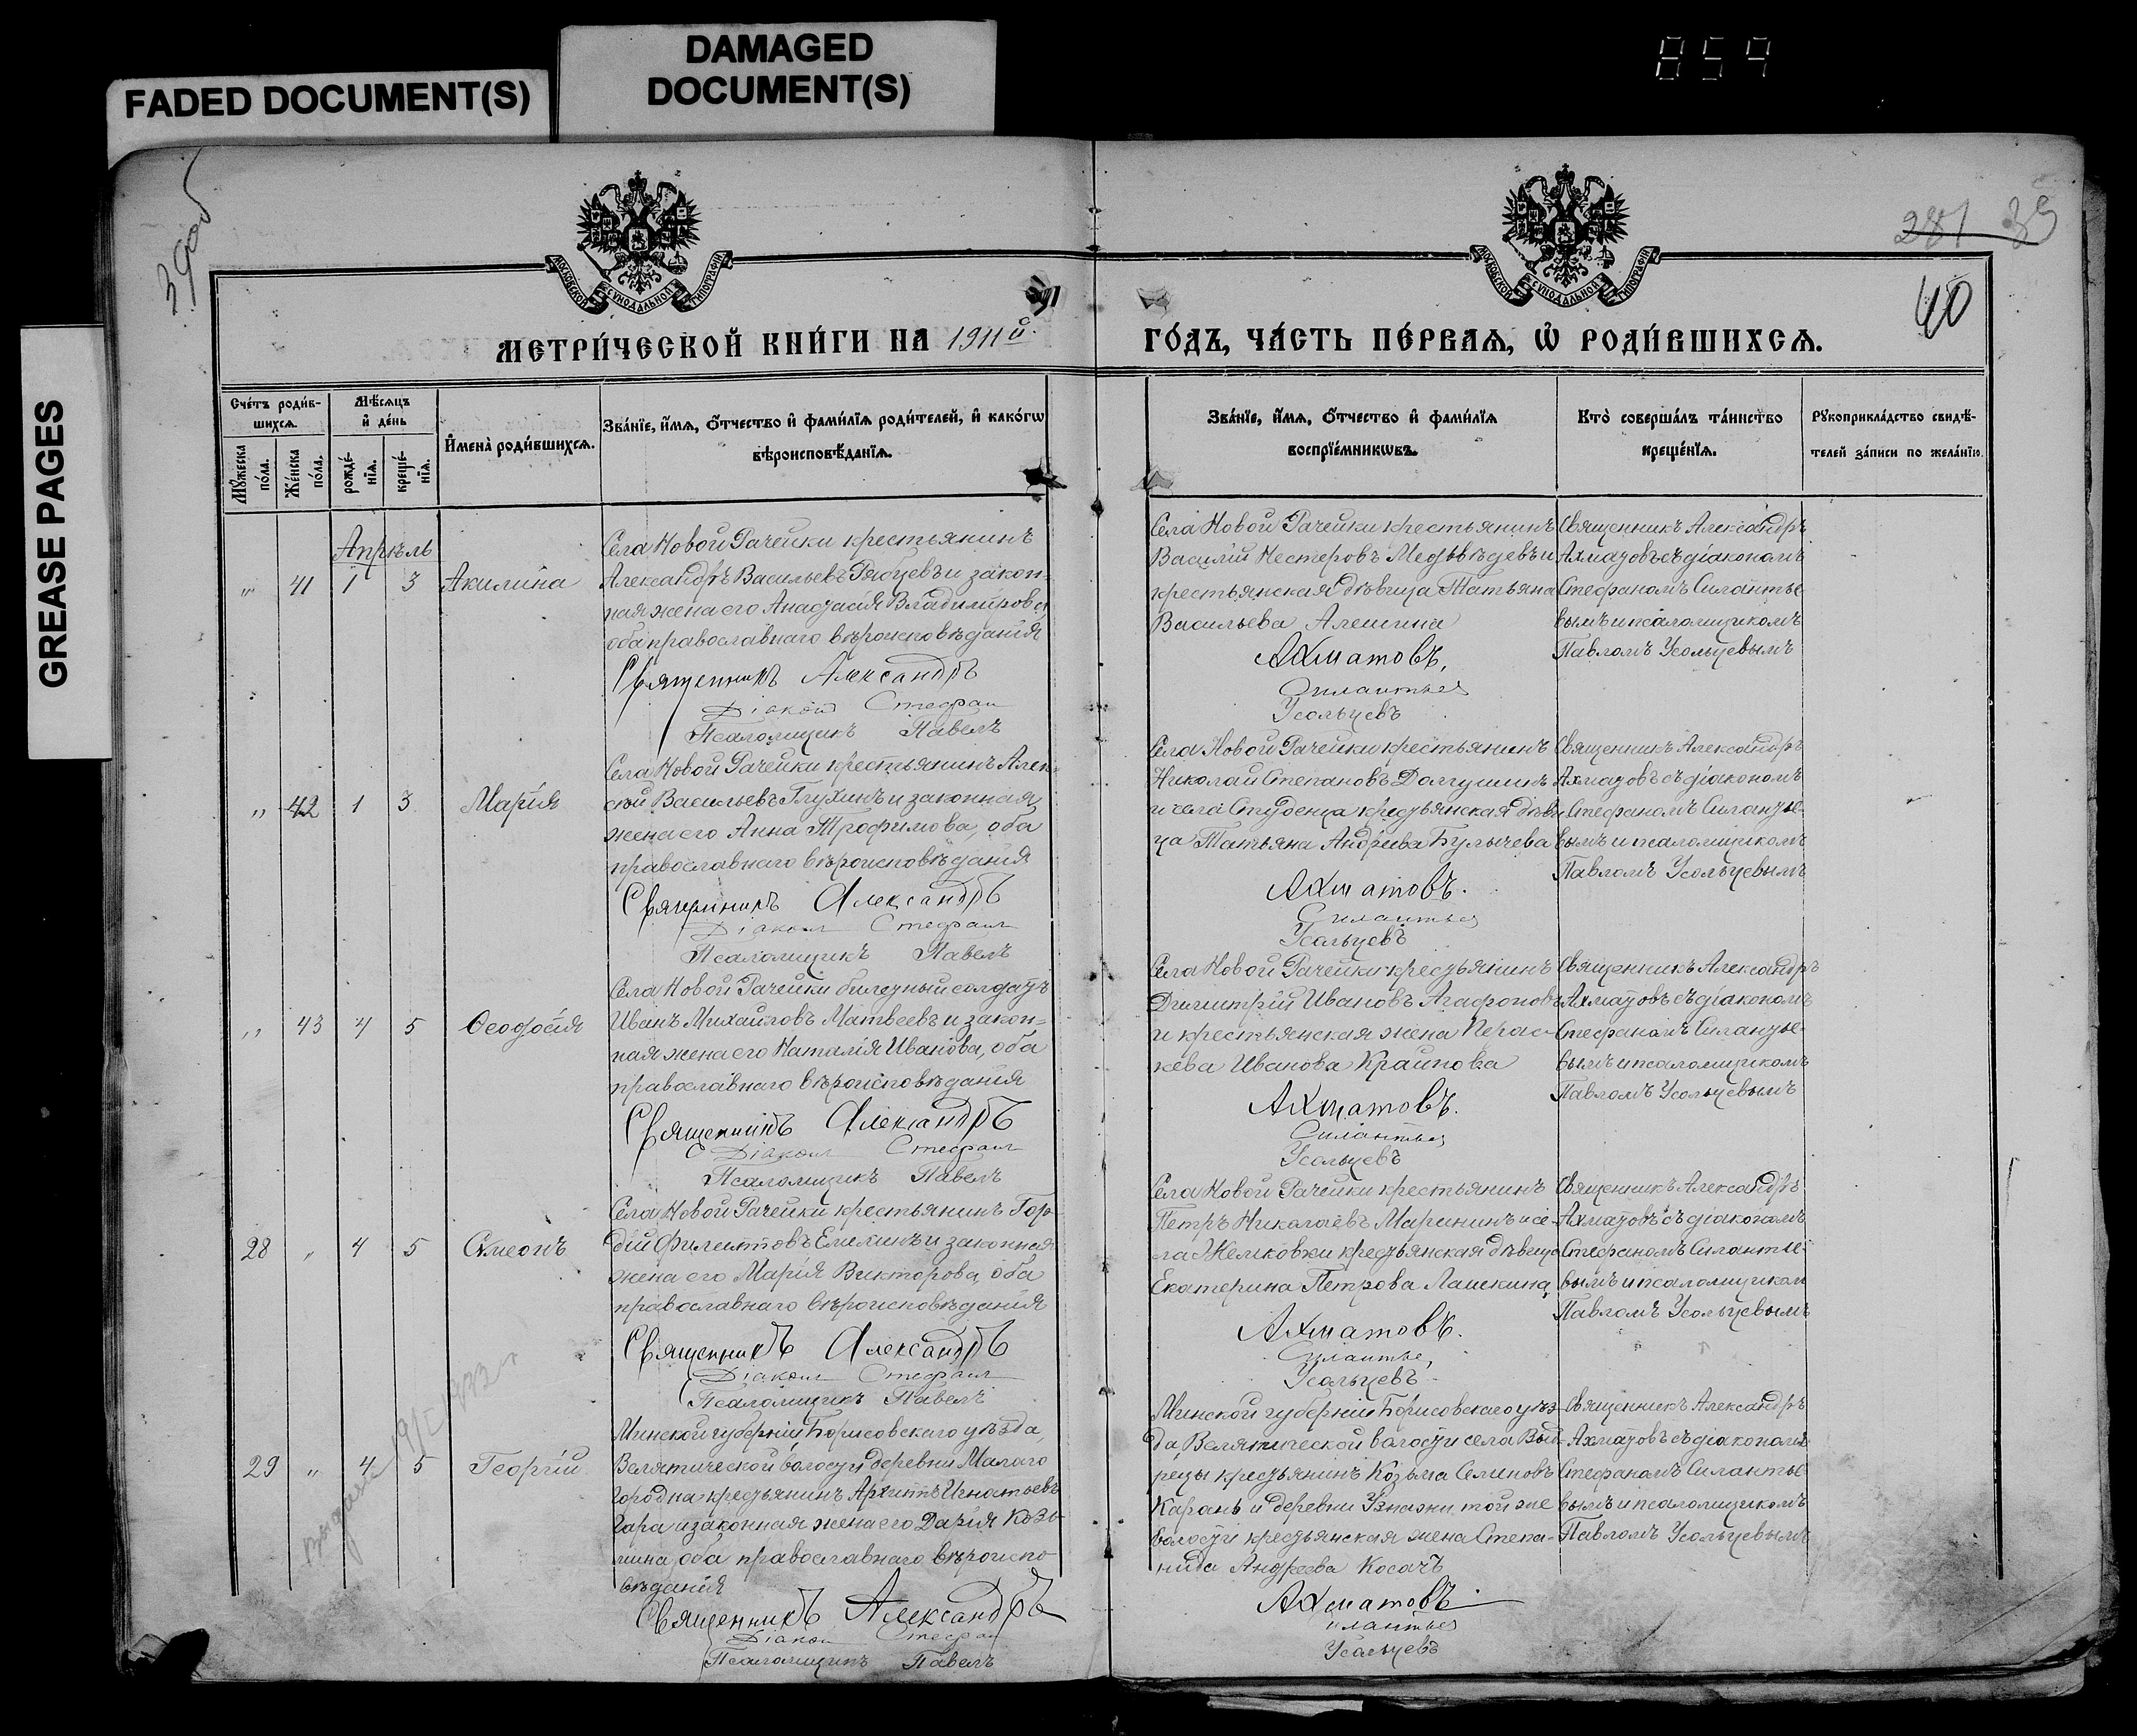 DAMAGED
DOCUMENT(S)
FADED DOCUMENT(S)
GREASE PAGES
859
281 39
40
МОСКОВСКОЙ СѴНОДАЛЬНОЙ ТИПОГРАФІИ
МОСКОВСКОЙ СѴНОДАЛЬНОЙ ТИПОГРАФІИ
МЕТРИ́ЧЕСКОЙ КНИ́ГИ НА 1911й
ГО́ДЪ, ЧА́СТЬ ПЕ́РВАѦ, Ѡ҆ РОДИ́ВШИХСѦ.
Сче́тъ роди́в-
шихсѧ.
Мꙋ́жеска по́ла.
Же́нска по́ла.
Мѣ́сѧцъ
и҆ де́нь
рожде́-
нїѧ.
креще́-
нїѧ.
И҆мена̀ роди́вшихсѧ.
Зва́нїе, и҆́мѧ, ѻ҆́тчество и҆ фами́лїѧ роди́телей, и҆ како́гѡ
вѣроисповѣ́данїѧ.
Зва́нїе, и҆́мѧ, ѻ҆́тчество и҆ фами́лїѧ
воспрїе́мникѡвъ.
Кто̀ соверша́лъ та́инство
креще́нїѧ.
Рꙋкоприкла́дство свидѣ́-
телей за́писи по жела́нїю.
Апрѣль
„ 41 1 3 Акилина
Села Новой Рачейки крестьянинъ
Александръ Васильевъ и закон-
ная жена его Анастасія Владимірова,
оба православнаго вѣроисповѣданія
Священникъ Александръ
Діаконъ Стефан
Псаломщикъ Павелъ
Села Новой Рачейки крестьянинъ
Василій Нестеровъ Медвѣдевъ и
крестьянская дѣвица Татьяна
Васильева Алешина
Ахматовъ,
Силантьев
Усольцевъ
Священникъ Александръ
Ахматовъ съ діакономъ
Стефаномъ Силантье-
вымъ и псаломщикомъ
Павломъ Усольцевымъ
„ 42 1 3 Марія
Села Новой Рачейки крестьянинъ Алек-
сѣй Васильевъ Глухинъ и законная
жена его Анна Трофимова, оба
православнаго вѣроисповѣданія
Священникъ Александръ
Діакон Стефан
Псаломщикъ Павелъ
Села Новой Рачейки крестьянинъ
Николай Степановъ Долгушинъ
и села Студенца крестьянская дѣви-
ца Татьяна Андреева Булычева
Ахматовъ.
Силантьев
Усольцевъ
Священникъ Александръ
Ахматовъ съ діакономъ
Стефаномъ Силантье-
вымъ и псаломщикомъ
Павломъ Усольцевымъ
„ 43 4 5 Ѳеодосія
Села Новой Рачейки билетный солдатъ
Иванъ Михайловъ Матвеевъ и закон-
ная жена его Наталія Иванова, оба
православнаго вѣроисповѣданія
Священникъ Александръ
Діакон Стефан
Псаломщикъ Павелъ
Села Новой Рачейки крестьянинъ
Димитрій Ивановъ Агафоновъ
и крестьянская жена Парас-
кева Иванова Крайнова
Ахматовъ.
Силантьев
Усольцевъ
Священникъ Александръ
Ахматовъ съ діакономъ
Стефаномъ Силантье-
вымъ и псаломщикомъ
Павломъ Усольцевымъ
28 „ 4 5 Сѵмеонъ
Села Новой Рачейки крестьянинъ Гор-
дій Филипповъ Емелинъ и законная
жена его Марія Викторова, оба
православнаго вѣроисповѣданія
Священникъ Александръ
Діакон Стефан
Псаломщикъ Павелъ
Села Новой Рачейки крестьянинъ
Петръ Николаевъ Маринин и се-
ла крестьянская дѣвица
Екатерина Петрова Лашкина
Ахматовъ.
Силантье,
Усольцевъ
Священникъ Александръ
Ахматовъ съ діакономъ
Стефаномъ Силантье-
вымъ и псаломщиком
Павломъ Усольцевымъ
29 „ 4 5 Георгій
Минской губерніи Борисовскаго уѣзда,
Велятической волости деревни Малаго
Городна крестьянинъ Архипъ Игнатьевъ
Гара и законная жена его Дарія Козь-
мина, оба православнаго вѣроиспо-
вѣданія
Священникъ Александръ
Діакон Стефан
Псаломщикъ Павелъ
Минской губерніи Борисовскаго уѣз-
да, Велятической волости села
крестьянинъ Козьма Семеновъ
Карань и деревни Узнажи той же
волости крестьянская жена Степа-
нида Андреева Косачъ
Ахматовъ
илантьев
Усольцевъ
Священникъ Александръ
Ахматовъ съ діакономъ
Стефаномъ Силантье-
вымъ и псаломщикомъ
Павломъ Усольцевымъ